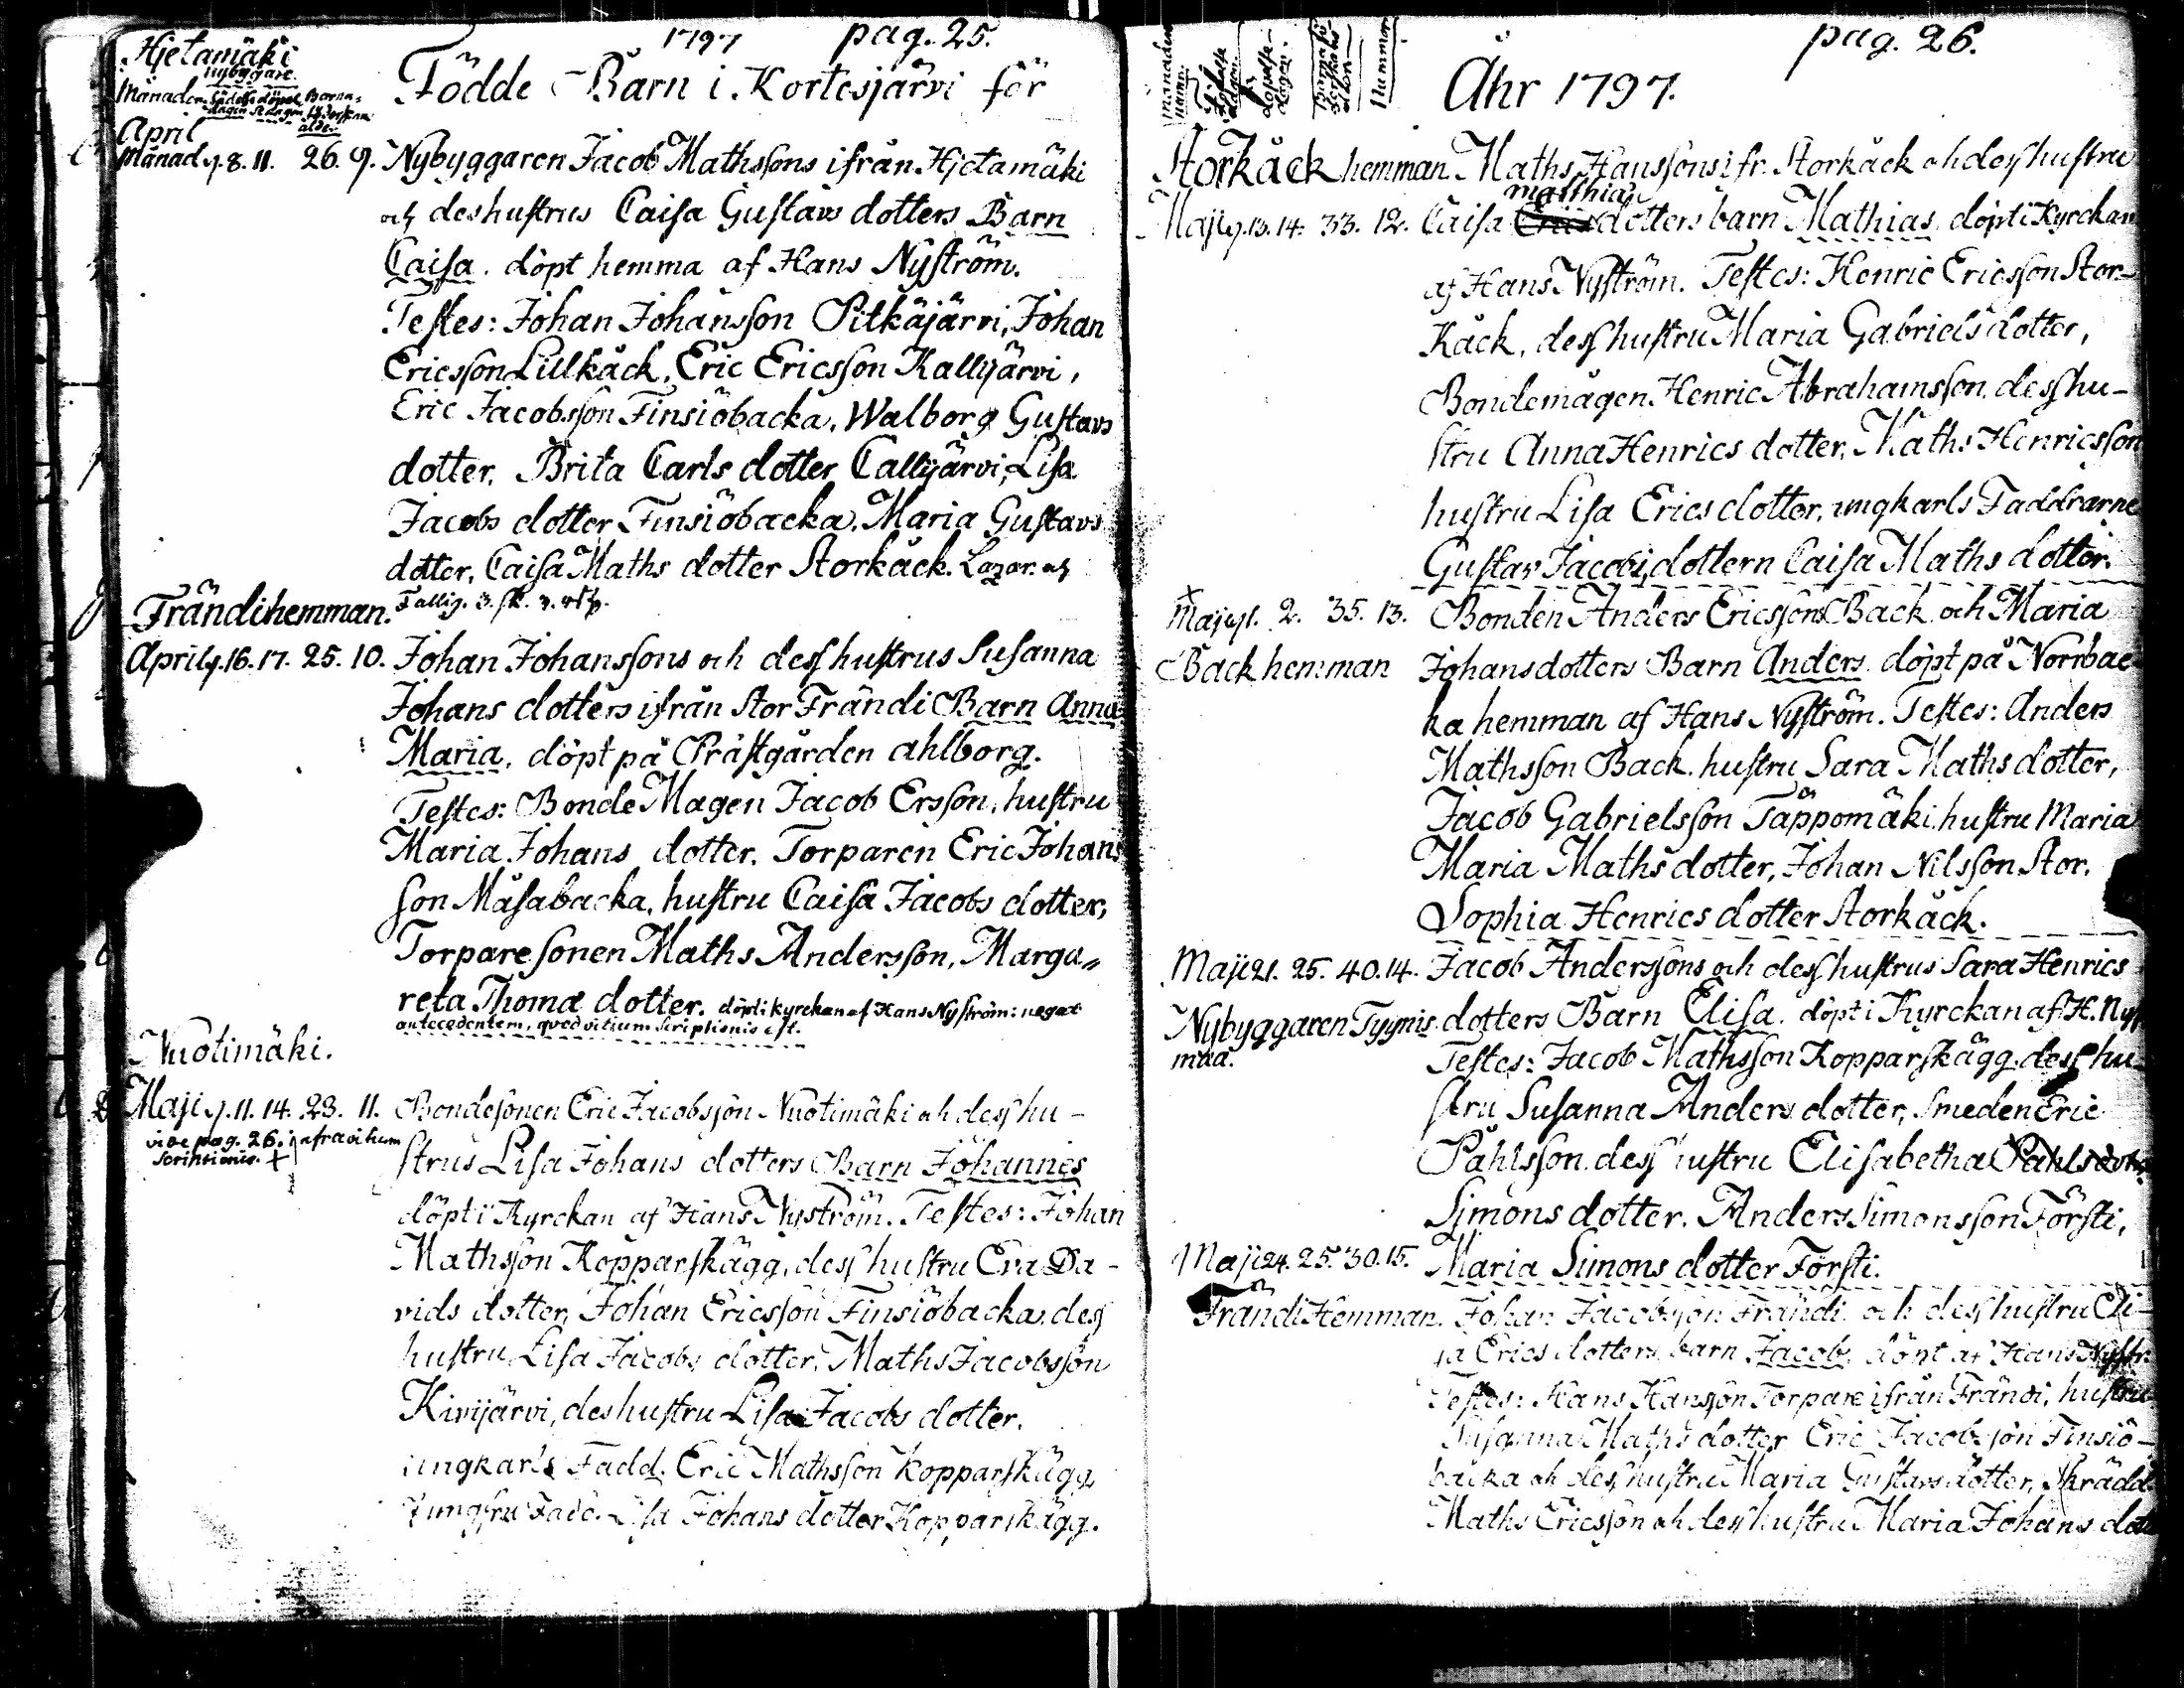 1797 pag. 25.
Hjetamäki
nybyggare.
Månaden födelse dagen döpelsedagen Barnaföderskan ålder
Födde Barn i Kortesjärvi för
April
Månad d. 8. 11. 26. 9. Nybyggaren Jacob Mathssons ifrån Hjetamäki
och des hustrus Caisa Gustavs dotters Barn
Caisa. döpt hemma af Hans Nyström.
Testes: Johan Johansson Pitkäjärvi, Johan
Ericsson Lillkäck, Eric Ericsson Kallijärvi,
Eric Jacobsson Finsiöbacka, Walborg Gustavs
dotter, Brita Carls dotter Callijärvi, Lisa
Jacobs dotter Finsiöbacka, Maria Gustavs
dotter, Caisa Maths dotter Storkäck. Lazar. och
Fattig. 3. sk.
Frändi hemman.
April d. 16. 17. 25. 10. Johan Johanssons och dess hustrus Susanna
Johans dotters ifrån Stor Frändi Barn Anna
Maria, döpt på Prästgården ahlborg.
Testes: Bonde Magen Jacob Ersson, hustru
Maria Johans dotter. Torparen Eric Johans
son Måsabacka, hustru Caisa Jacobs dotter,
Torpare sonen Maths Andersson, Marga„
reta Thomæ dotter. döpt i kyrckan af Hans Nyström: negat
antecedentem, qvod vitium scriptionis est.
Nuotimäki.
Maji d. 11. 14. 23. 11. Bondesonen Eric Jacobsson Nuotimäki och dess hu-
vide pag. 26. infra vitium
scriptionis. +
strus Lisa Johans dotters Barn Johannes
döpt i Kyrckan af Hans Nyström. Testes: Johan
Mathsson Kopparskägg, dess hustru Eva Da-
vids dotter, Johan Ericsson Finsiöbacka, dess
hustru Lisa Jacobs dotter, Maths Jacobsson
Kivijärvi, des hustru Lisa Jacobs dotter.
ungkarls Fadd. Eric Mathsson Kopparskägg,
Jungfru Fadd. Lisa Johans dotter Kopparskägg.
pag. 26.
Månadens namn. födelse dagen döpelse-dagen. Barnaföderskans ålder Nummer
Åhr 1797.
Storkäck hemman. Maths Hanssons ifr. Storkäck och dess hustru
matthiæ
Maji d. 13. 14. 33. 12. Caisa Erics dotters barn Mathias, döpt i Kyrckan
af Hans Nyström. Testes: Henric Ericsson Stor-
käck, dess hustru Maria Gabriels dotter,
Bondemågen Henric Abrahamsson, dess hu-
stru Anna Henrics dotter, Maths Henricsson
hustru Lisa Erics dotter, ungkarls Faddrarne
Gustav Jacobi, dottern Caisa Maths dotter.
+
Maji d. 1. 2. 35. 13. Bonden Anders Ericssons Back och Maria
Back hemman Johansdotters Barn Anders. döpt på Norrbac
ka hemman af Hans Nyström. Testes: Anders
Mathsson Back. hustru Sara Maths dotter,
Jacob Gabrielsson Täppomäki. hustru Maria
Maria Maths dotter, Johan Nilsson Stor.
Sophia Henrics dotter Storkäck.
Maji 21. 25. 40. 14. Jacob Anderssons och dess hustrus Sara Henrics
Nybyggaren Tyynis dotters Barn Elisa. döpt i Kyrckan af H. Ny
maa. Testes: Jacob Mathsson Kopparskägg. dess hu-
stru Susanna Anders dotter, Smeden Eric
Påhlsson. dess hustru Elisabetha Påhlsdott.
Simons dotter. Anders Simonsson Försti,
Maji 24. 25. 30. 15. Maria Simons dotter Försti.
Frändi Hemman. Johan Jacobsson Frändi och dess hustru Eli-
sa Erics dotters barn Jacob, döpt af Hans Nystr.
Testes: Hans Hansson Torpare ifrån Frändi, hustru
Susanna Maths dotter Eric Jacobsson Finsiö-
backa och dess hustru Maria Gustavs dotter, Skrädd.
Maths Ericsson och dess hustru Maria Johans dott